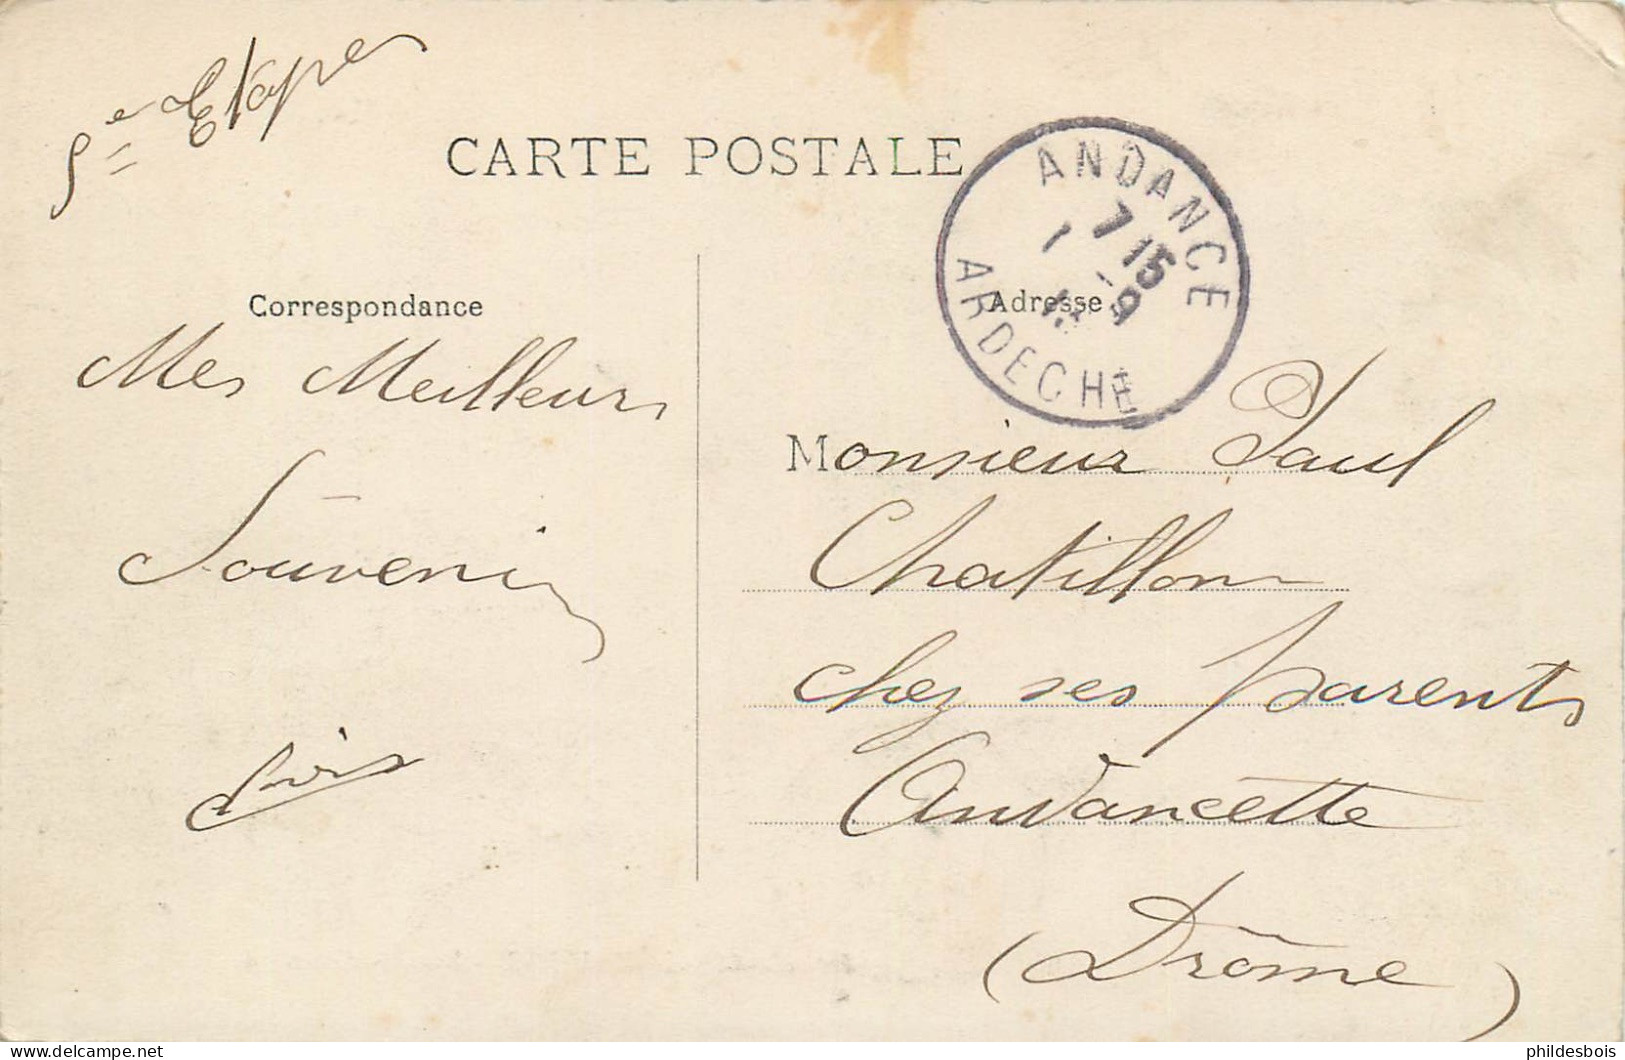 Etape
CARTE POSTALE
ANDANCE
7 15
1 - 9
ARDECHE
Correspondance
Mes Meilleurs
Souvenir
Adresse
Monsieur Paul
Chatillon
chez ses parents
Andancette
(Drôme)
phildesbois